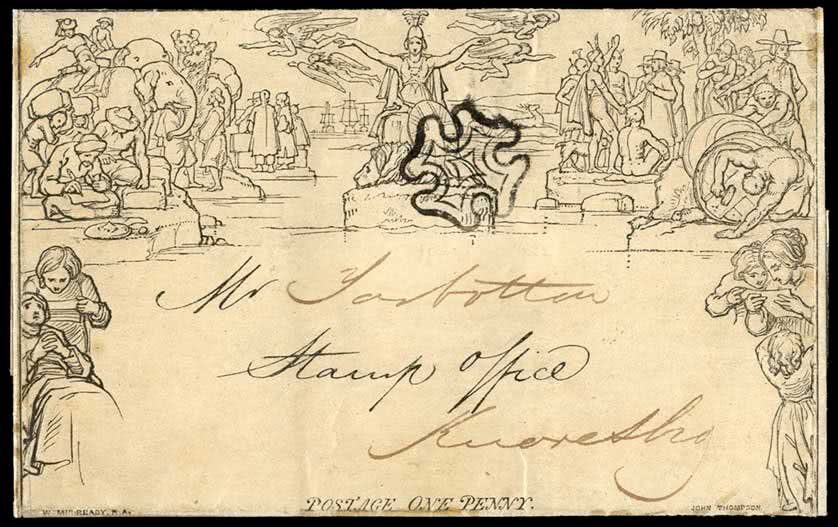 Mr Tasbottan
Stamp Office
Knaresbro
POSTAGE ONE PENNY.
W. MULREADY. R.A.
JOHN THOMPSON